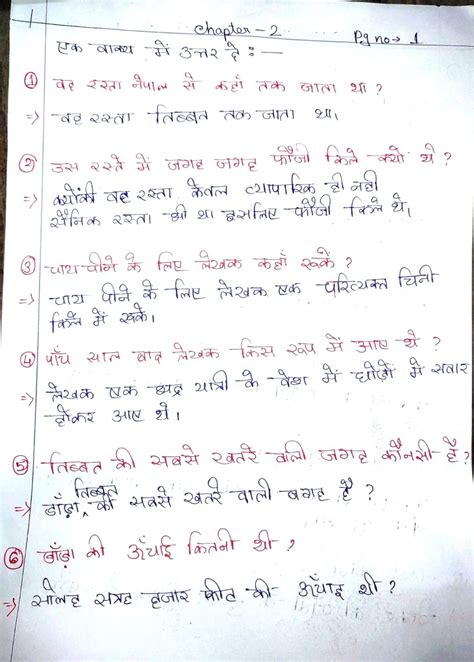 Chapter - 2
Pg no→ 1
एक वाक्य में उत्तर दे :—
① वह रस्ता नेपाल से कहाँ तक जाता था ?
=> वह रस्ता तिब्बत तक जाता था।
② उस रस्ते में जगह जगह फौजी किले क्यो थे ?
=> क्योंकी वह रस्ता केवल व्यापारिक ही नही
सैनिक रस्ता भी था इसलिए फौजी किले थे।
③ चाय पीने के लिए लेखक कहाँ रूके ?
=> चाय पीने के लिए लेखक एक परित्यक्त चिनी
किले में रूके।
④ पाँच साल बाद लेखक किस रूप में आए थे ?
=> लेखक एक भद्र यात्री के वेश में घोड़ो मे सवार
होकर आए थे।
⑤ तिब्बत की सबसे खतरे वाली जगह कौनसी है ?
=> डाँड़ा, तिब्बत की सबसे खतरे वाली जगह है ?
⑥ डाँड़ा की ऊँचाई कितनी थी ?
=> सोलह सत्रह हजार फीट की ऊँचाइ थी ?